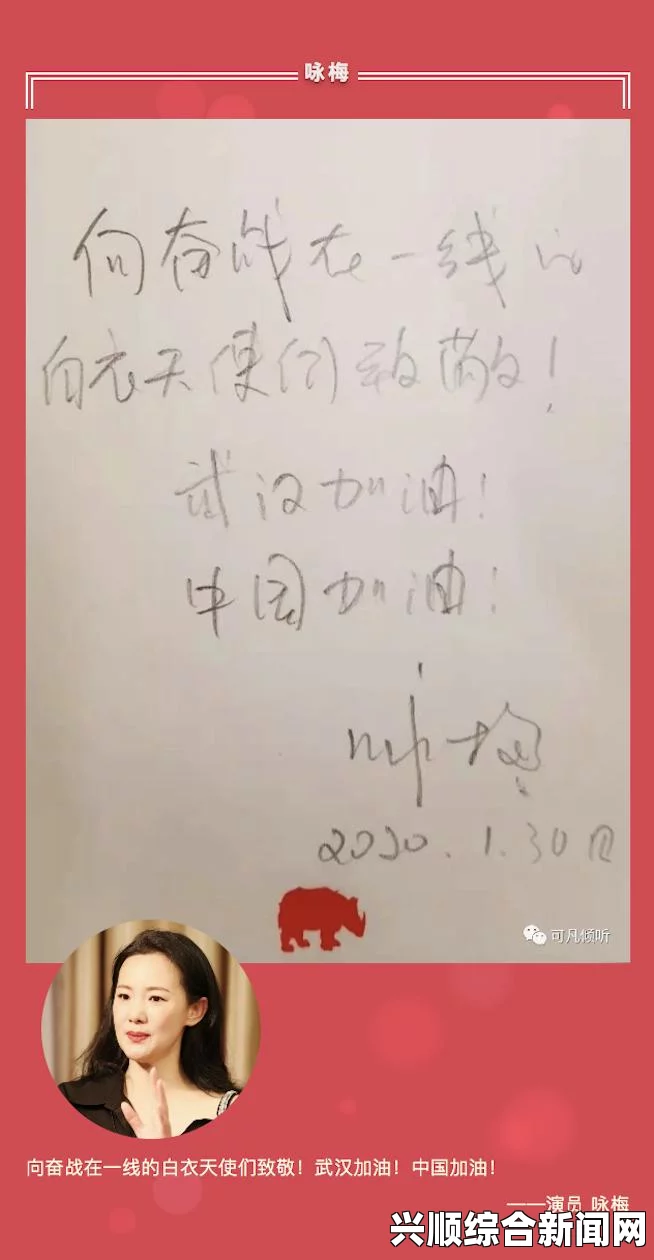 咏梅
向奋战在一线的
白衣天使们致敬！
武汉加油！
中国加油！
咏梅
2020.1.30日
可凡倾听
向奋战在一线的白衣天使们致敬！武汉加油！中国加油！
——演员 咏梅
兴顺综合新闻网